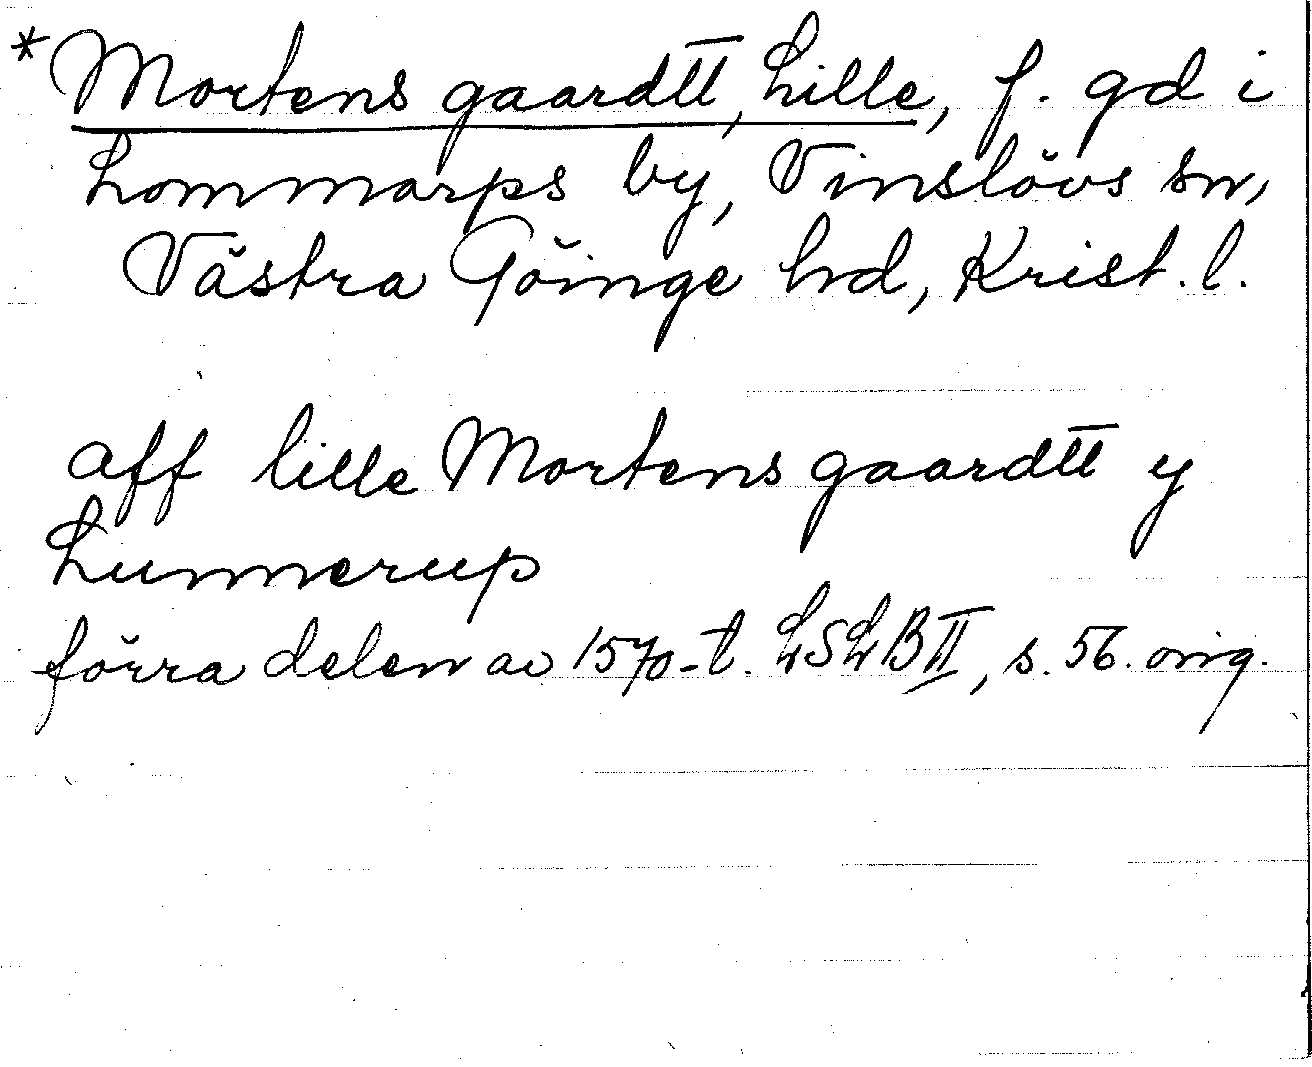 *Mortens gaardtt, Lille, f. gd i
Lommarps by, Vinslövs sn,
Västra Göinge hd, Krist. l.
aff lille Mortens gaardtt y
Lunnerup
förra delen av 1570-t. LSLB II, s. 56. orig.